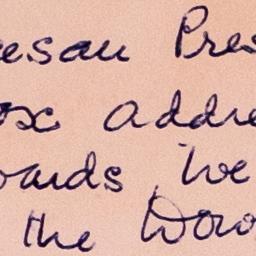 esau Pres
ox addre
oards we
the Wow